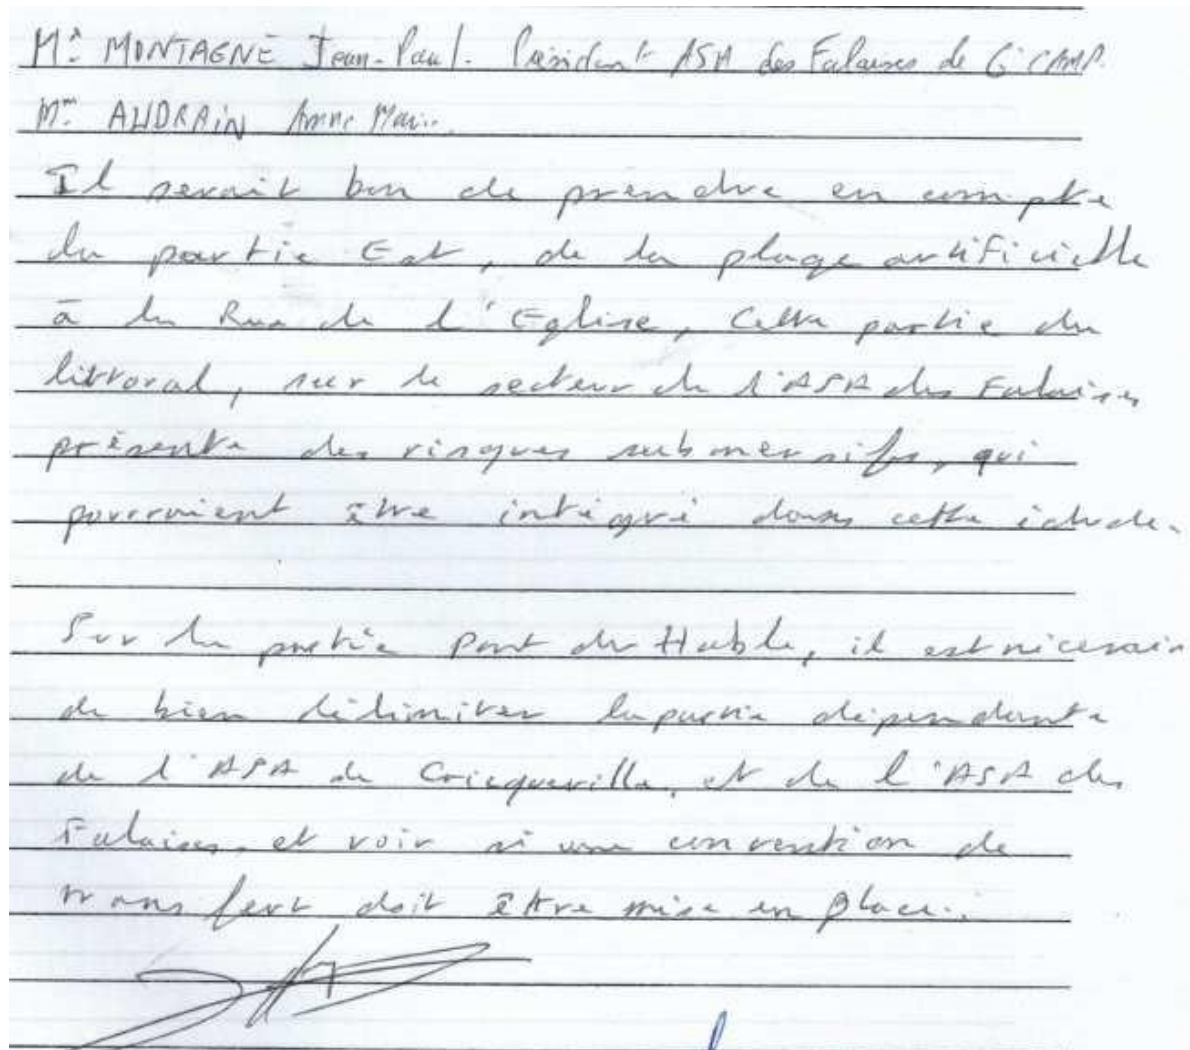 Mr MONTAGNE Jean-Paul. Président ASA des Falaises de Gd CAMP.
Mme AUDRAIN Anne Marie.
Il serait bon de prendre en compte
la partie Est, de la plage artificielle
à la Rue de l'Eglise, Cette partie du
littoral, sur le secteur de l'ASA des Falaises
présente des risques submersifs, qui
pourraient être intégré dans cette étude.
Sur la partie Pont du Hable, il est nécessaire
de bien délimiter la partie dépendante
de l'ASA de Cricqueville, et de l'ASA des
Falaises, et voir si une convention de
transfert doit être mise en place..